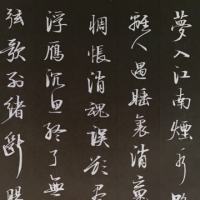 夢入江南煙水路
離人遇睡裏消魂
惆悵消魂誤欲盡
浮雁沉魚終了無
弦歌別緒斷腸